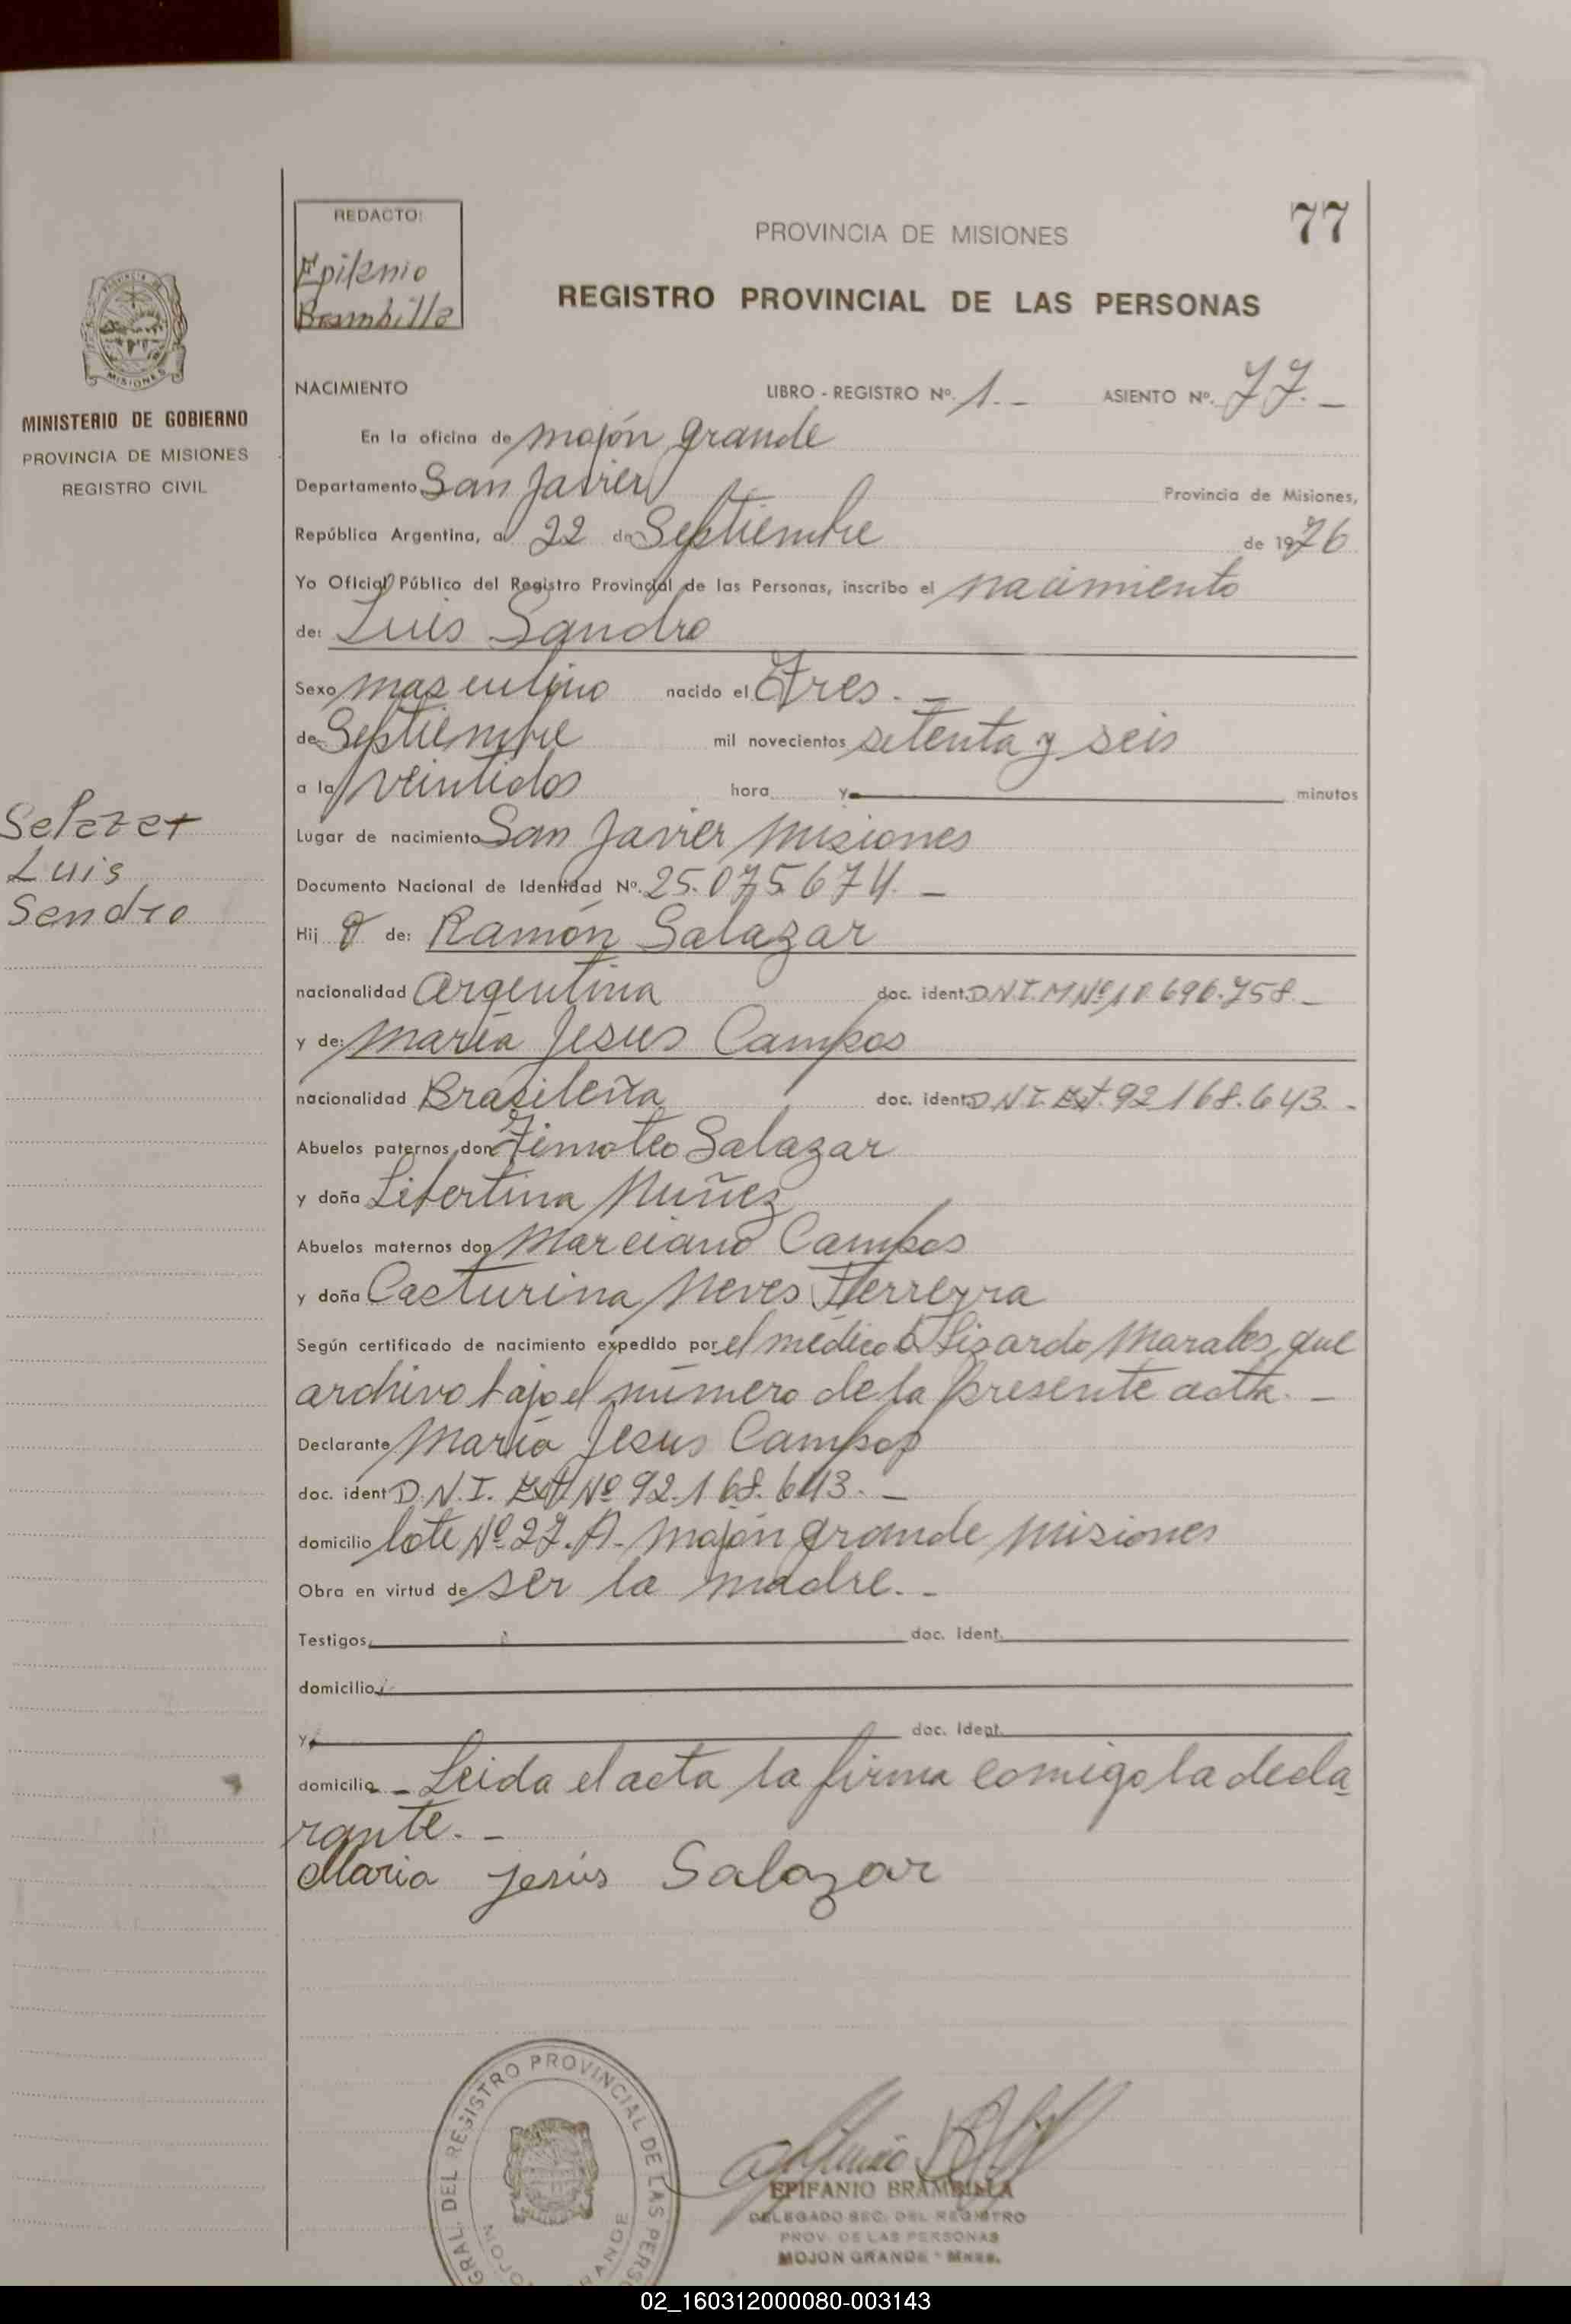 77
REDACTO:
Epifanio
Brambilla
PROVINCIA DE MISIONES
REGISTRO PROVINCIAL DE LAS PERSONAS
MISIONES
MINISTERIO DE GOBIERNO
PROVINCIA DE MISIONES
REGISTRO CIVIL
NACIMIENTO LIBRO - REGISTRO Nº. 1. - ASIENTO Nº. 77. -
En la oficina de mojón grande
Departamento San Javier Provincia de Misiones,
República Argentina, a 22 de Septiembre de 1976
Yo Oficial Público del Registro Provincial de las Personas, inscribo el nacimiento
de: Luis Sandro
Sexo masculino nacido el Tres. -
de Septiembre mil novecientos setenta y seis
a la veintidos hora y minutos
Salazar
Luis
Sandro
Lugar de nacimiento San Javier Misiones
Documento Nacional de Identidad Nº. 25.075.674. -
Hij o de: Ramón Salazar
nacionalidad Argentina doc. ident. D.N.I. M Nº 10.696.758. -
y de: María Jesus Campos
nacionalidad Brasileña doc. ident. D.N.I. Ext. 92.168.643. -
Abuelos paternos don Timoteo Salazar
y doña Libertina Nuñez
Abuelos maternos don Marciano Campos
y doña Casturina Neves Ferreyra
Según certificado de nacimiento expedido por el médico D. Lisardo Morales, que
archivo bajo el número de la presente acta. -
Declarante María Jesus Campos
doc. ident D.N.I. Ext. Nº 92.168.643. -
domicilio lote Nº 27.A. mojón grande Misiones
Obra en virtud de ser la madre. -
Testigos doc. ident.
domicilio
y doc. ident.
domicilio - Leida el acta la firma comigo la decla
rante. -
Maria jesús Salazar
GRAL. DEL REGISTRO PROVINCIAL DE LAS PERSO
MOJON GRANDE
EPIFANIO BRAMBILLA
DELEGADO SEC. DEL REGISTRO
PROV. DE LAS PERSONAS
MOJON GRANDE - Mnes.
02_160312000080-003143